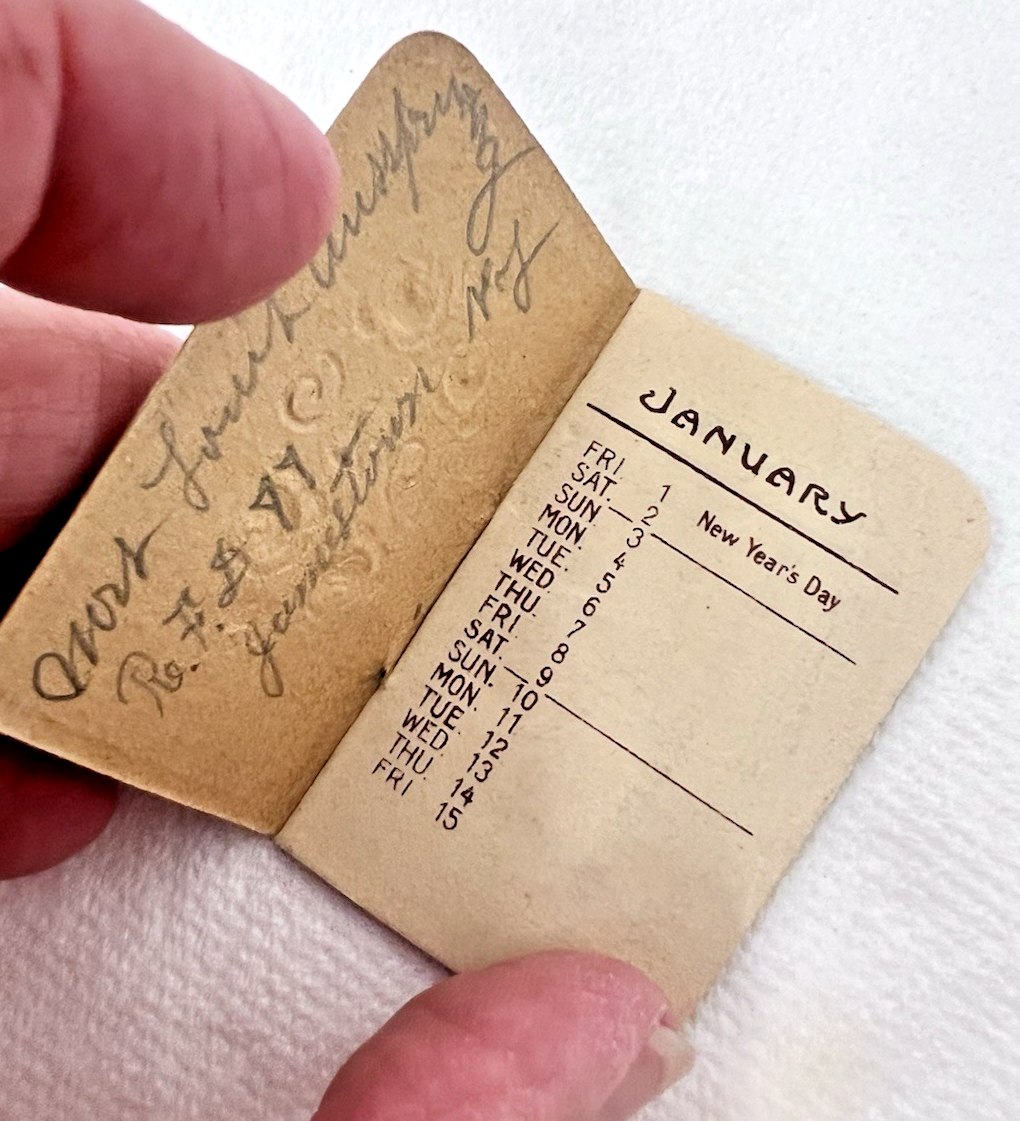 R. F. D 
Jamestown N.Y
JANUARY
FRI. 1 New Year's Day
SAT. 2
SUN 3
MON. 4
TUE. 5
WED. 6
THU. 7
FRI. 8
SAT. 9
SUN. 10
MON. 11
TUE. 12
WED. 13
THU. 14
FRI 15